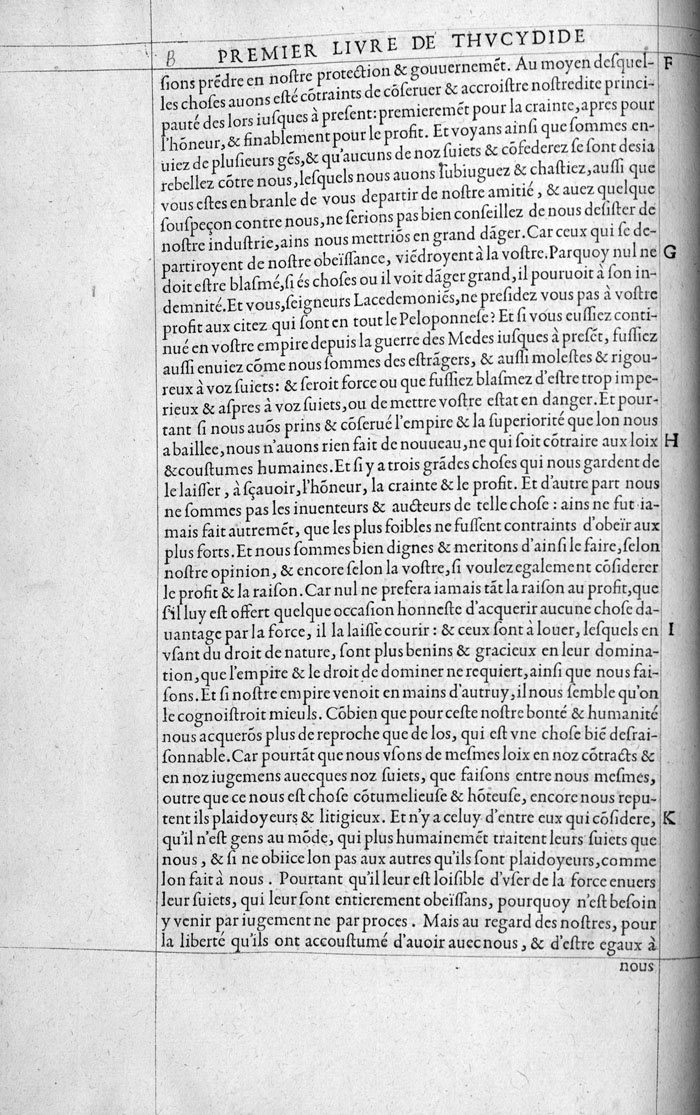 B PREMIER LIVRE DE THVCYDIDE
ſions prẽdre en noſtre protection & gouuernemẽt. Au moyen deſquel- F
les choſes auons eſté cõtraints de cõſeruer & accroiſtre noſtredite princi-
pauté des lors iuſques à preſent: premieremẽt pour la crainte, apres pour
l'hõneur, & finablement pour le profit. Et voyans ainſi que ſommes en-
uiez de pluſieurs gẽs, & qu'aucuns de noz ſuiets & cõfederez ſe ſont desia
rebellez cõtre nous, leſquels nous auons ſubiuguez & chaſtiez, auſſi que
vous eſtes en branle de vous departir de noſtre amitié, & auez quelque
ſouſpeçon contre nous, ne ſerions pas bien conſeillez de nous deſiſter de
noſtre induſtrie, ains nous mettriõs en grand dãger. Car ceux qui ſe de-
partiroyent de noſtre obeïſſance, viẽdroyent à la voſtre. Parquoy nul ne G
doit eſtre blaſmé, ſi és choſes ou il voit dãger grand, il pouruoit à ſon in-
demnité. Et vous, ſeigneurs Lacedemoniẽs, ne preſidez vous pas à voſtre
profit aux citez qui ſont en tout le Peloponneſe? Et ſi vous euſſiez conti-
nué en voſtre empire depuis la guerre des Medes iuſques à preſẽt, fuſſiez
auſſi enuiez cõme nous ſommes des eſtrãgers, & auſſi moleſtes & rigou-
reux à voz ſuiets: & ſeroit force ou que fuſſiez blaſmez d'eſtre trop impe-
rieux & aſpres à voz ſuiets, ou de mettre voſtre eſtat en danger. Et pour-
tant ſi nous auõs prins & cõſerué l'empire & la ſuperiorité que lon nous
a baillee, nous n'auons rien fait de nouueau, ne qui ſoit cõtraire aux loix H
& couſtumes humaines. Et ſi y a trois grãdes choſes qui nous gardent de
le laiſſer, à ſçauoir, l'hõneur, la crainte & le profit. Et d'autre part nous
ne ſommes pas les inuenteurs & aucteurs de telle choſe: ains ne fut ia-
mais fait autremẽt, que les plus foibles ne fuſſent contraints d'obeïr aux
plus forts. Et nous ſommes bien dignes & meritons d'ainſi le faire, ſelon
noſtre opinion, & encore ſelon la voſtre, ſi voulez egalement cõſiderer
le profit & la raiſon. Car nul ne prefera iamais tãt la raiſon au profit, que
s'il luy eſt offert quelque occaſion honneſte d'acquerir aucune choſe da-
uantage par la force, il la laiſſe courir: & ceux ſont à louer, leſquels en I
vſant du droit de nature, ſont plus benins & gracieux en leur domina-
tion, que l'empire & le droit de dominer ne requiert, ainſi que nous fai-
ſons. Et ſi noſtre empire venoit en mains d'autruy, il nous ſemble qu'on
le cognoiſtroit mieuls. Cõbien que pour ceſte noſtre bonté & humanité
nous acquerõs plus de reproche que de los, qui eſt vne choſe biẽ deſrai-
ſonnable. Car pourtãt que nous vſons de meſmes loix en noz cõtracts &
en noz iugemens auecques noz ſuiets, que faiſons entre nous meſmes,
outre que ce nous eſt choſe cõtumelieuſe & hõteuſe, encore nous repu-
tent ils plaidoyeurs & litigieux. Et n'y a celuy d'entre eux qui cõſidere, K
qu'il n'eſt gens au mõde, qui plus humainemẽt traitent leurs ſuiets que
nous, & ſi ne obiice lon pas aux autres qu'ils ſont plaidoyeurs, comme
lon fait à nous. Pourtant qu'il leur eſt loiſible d'vſer de la force enuers
leur ſuiets, qui leur ſont entierement obeïſſans, pourquoy n'eſt beſoin
y venir par iugement ne par proces. Mais au regard des noſtres, pour
la liberté qu'ils ont accouſtumé d'auoir auec nous, & d'eſtre egaux à
nous